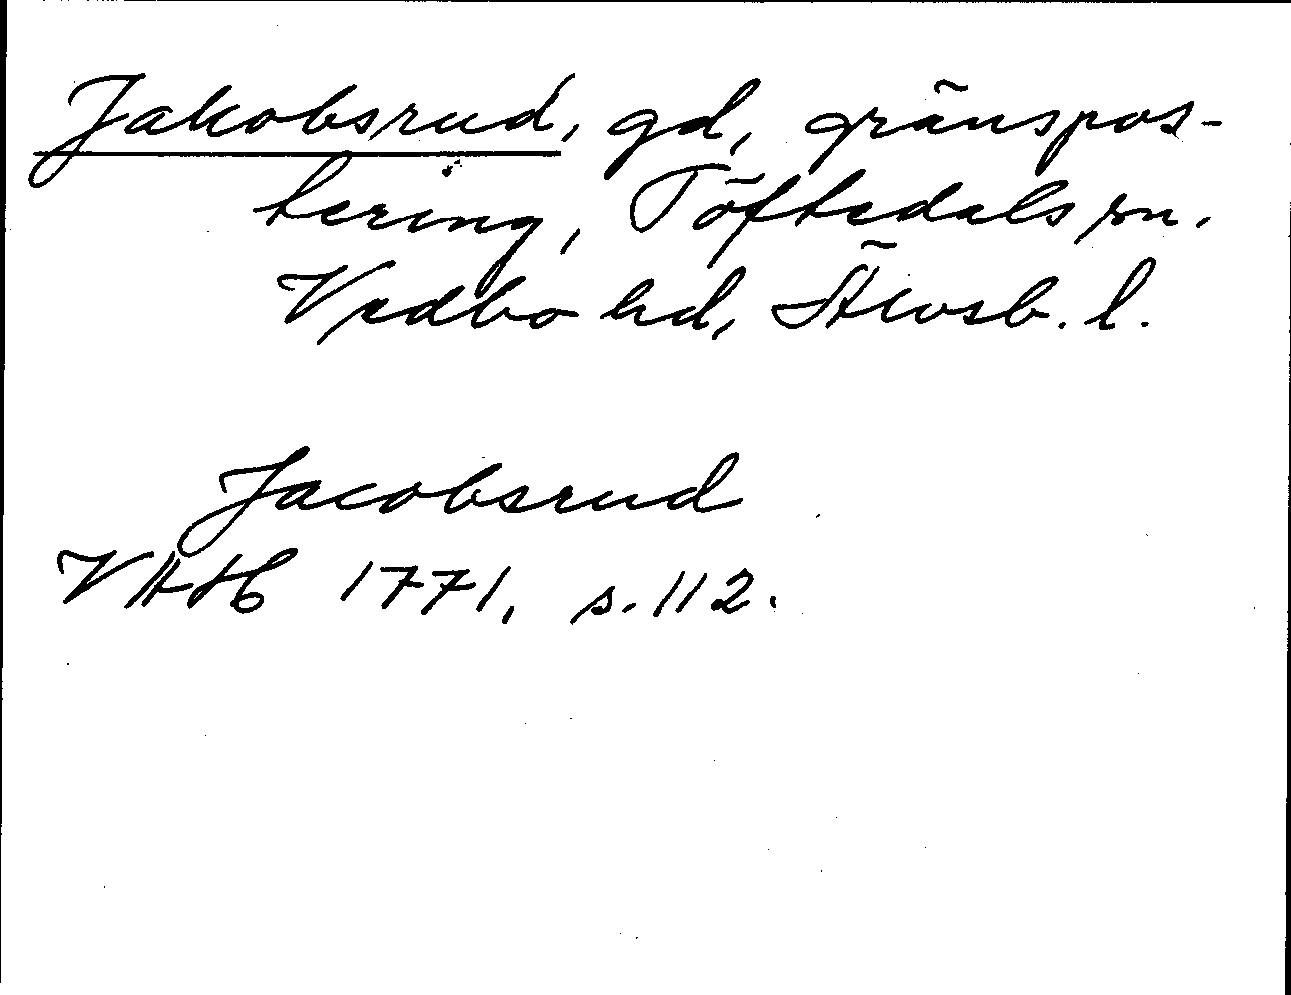 Jakobsrud, gd, gränspos-
tering, Töftedals sn.
Vedbo hd, Älvsb. l.
Jacobsrud
VHAH 1771, s. 112.